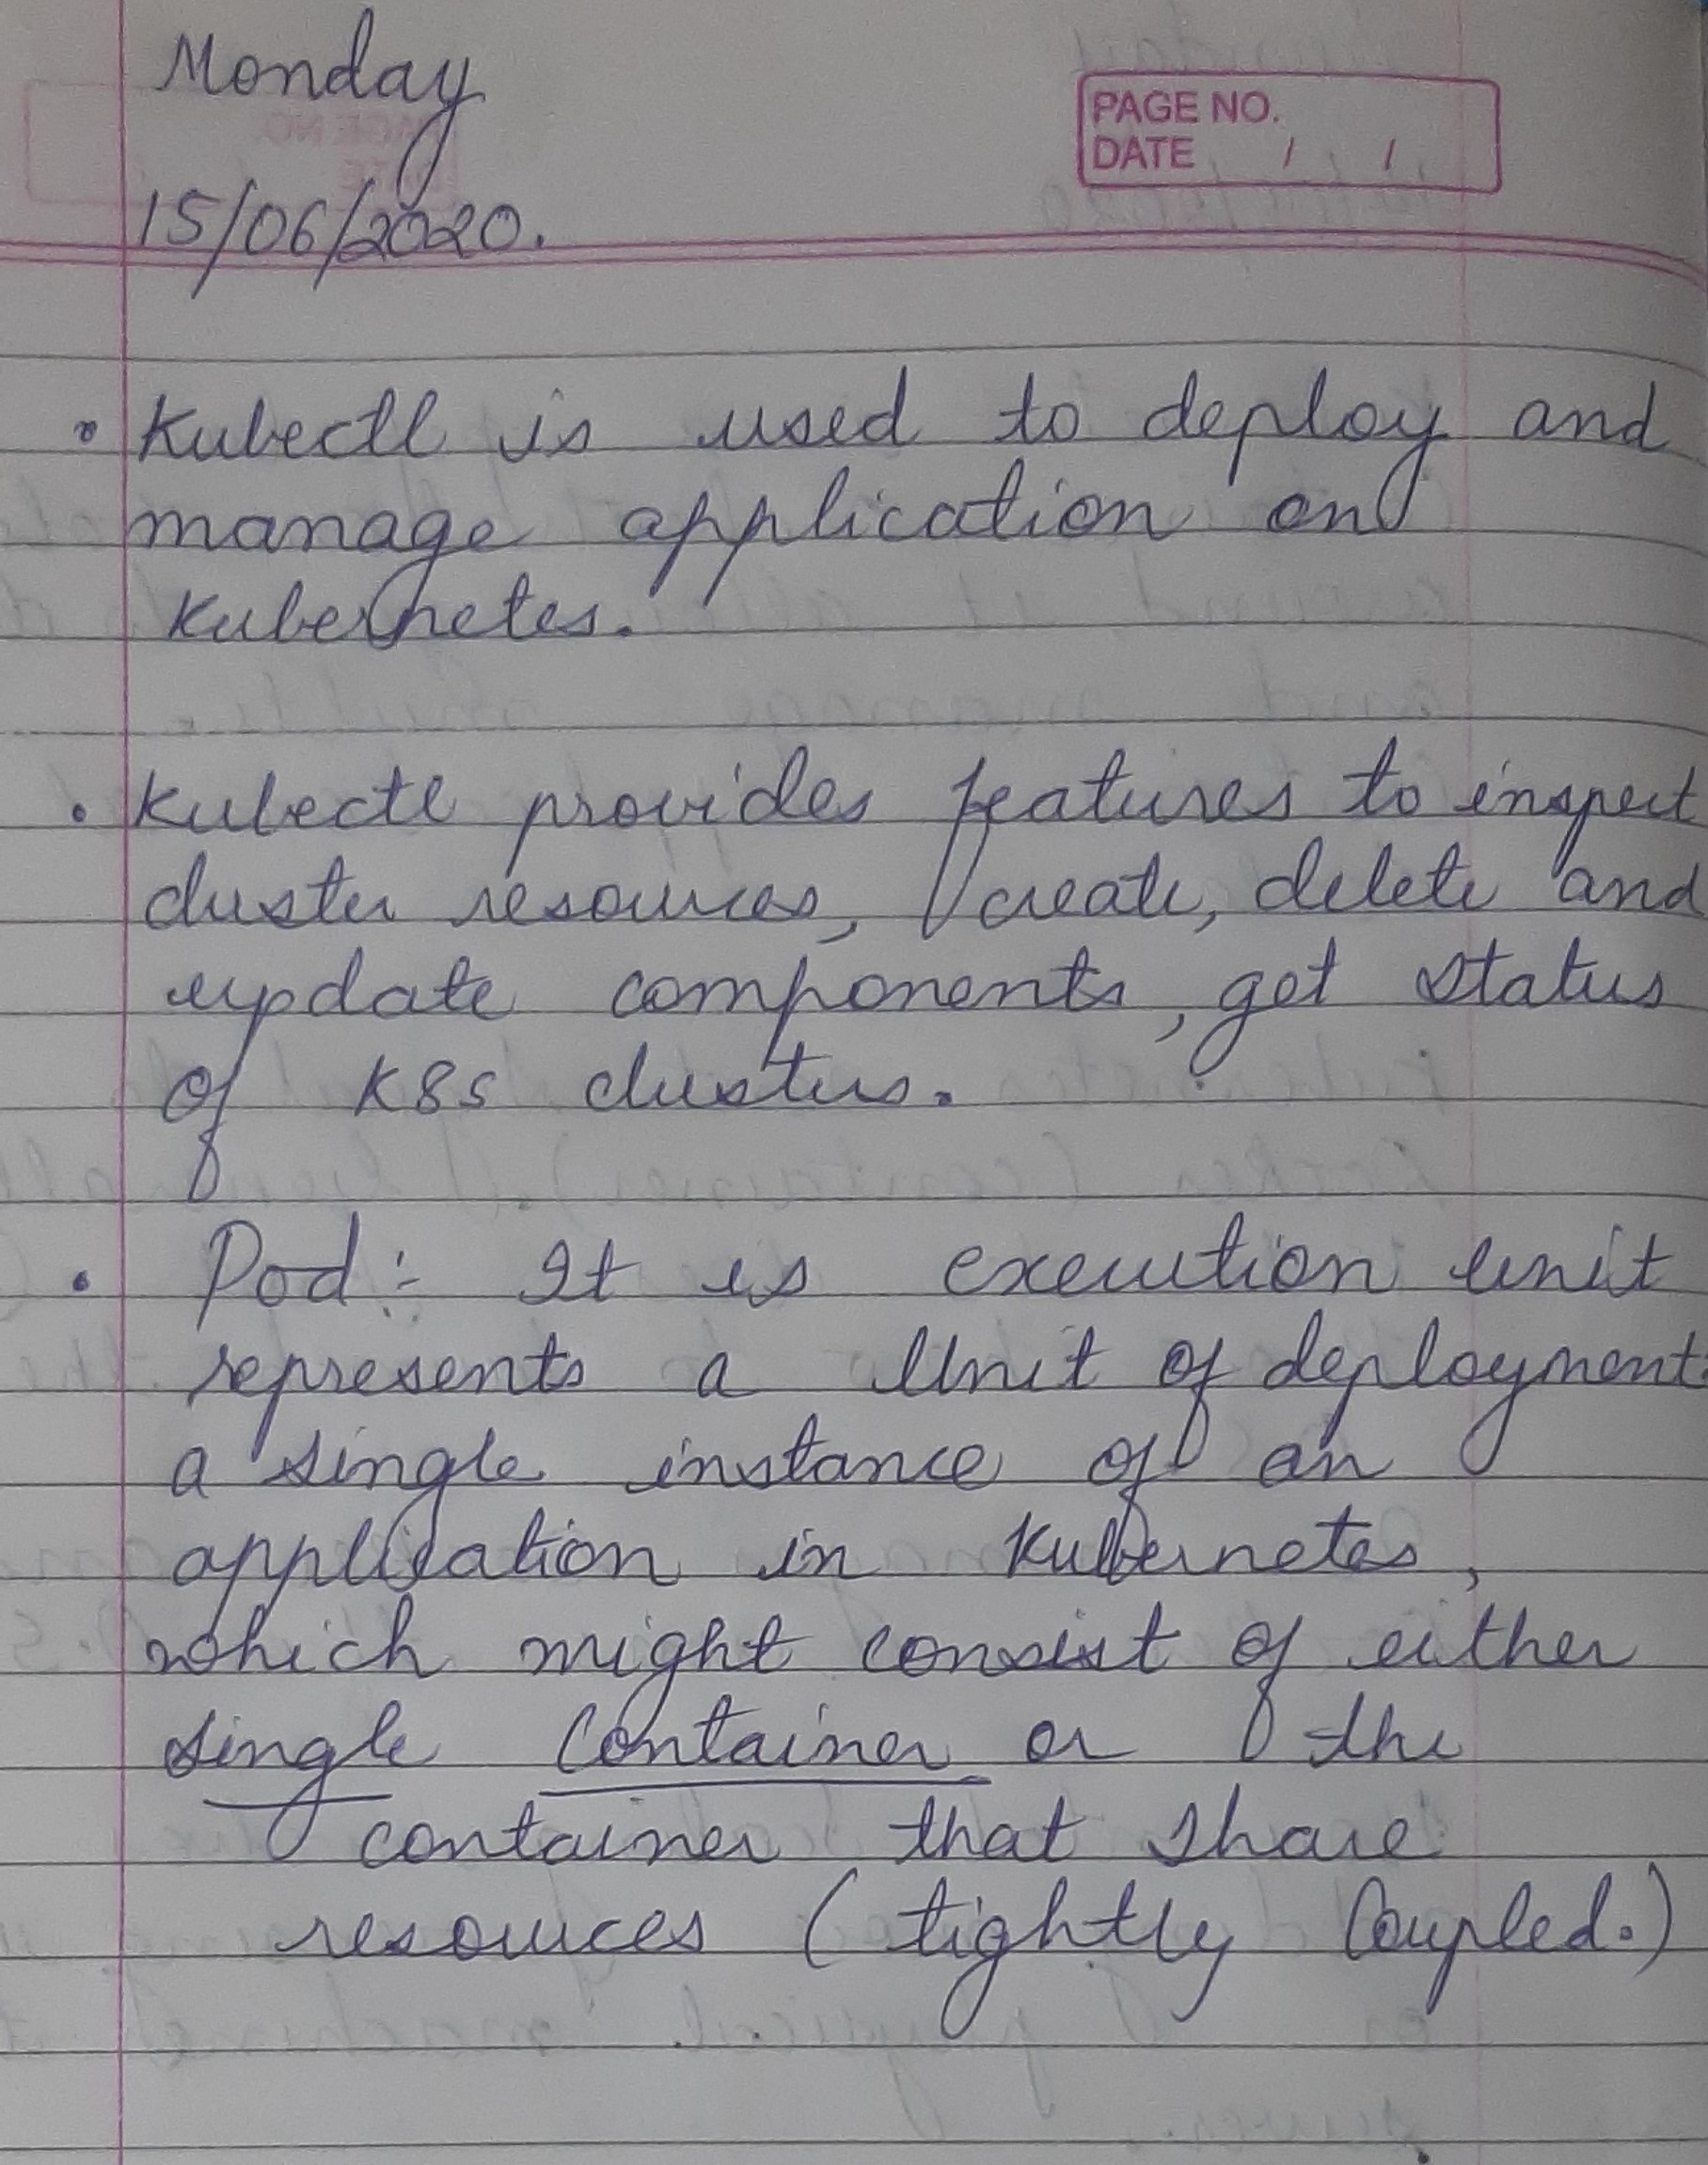 Monday
PAGE NO.
DATE / /
15/06/2020.
• Kubectl is used to deploy and
manage application on
Kubernetes.
• Kubectl provides features to inspect
cluster resources, create, delete and
update components, get status
of K8s clusters.
• Pod :- It is execution unit
represents a Unit of deployment:
a single instance of an
application in Kubernetes,
which might consist of either
single Container or the
container that share
resources (tightly Coupled.)